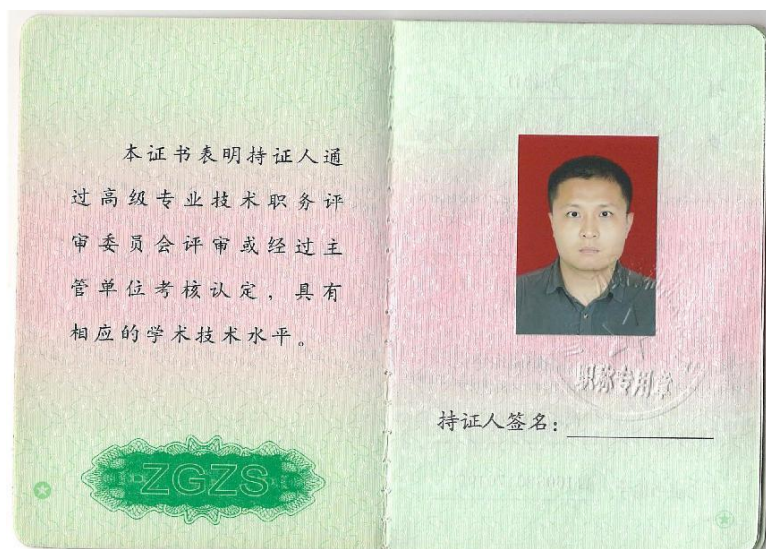 本证书表明持证人通
过高级专业技术职务评
审委员会评审或经过主
管单位考核认定，具有
相应的学术技术水平。
ZGZS
职称专用章
持证人签名：